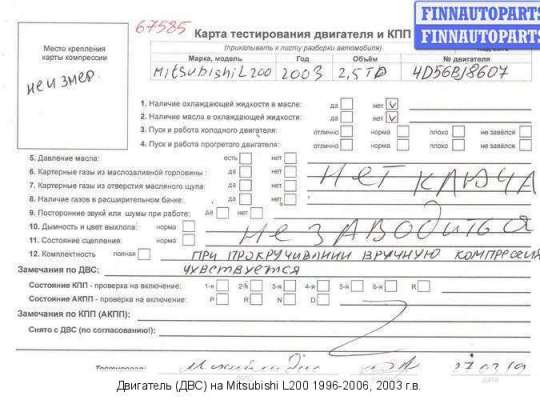 67585
Карта тестирования двигателя и КПП
FINNAUTOPARTS
FINNAUTOPARTS
(прикалывать к листу разборки автомобиля)
Место крепления карты компрессии
не измер.
Марка, модель Год Объём № двигателя
Mitsubishi L200 2003 2,5 TD 4D56BJ8607
1. Наличие охлаждающей жидкости в масле: да нет V
2. Наличие масла в охлаждающей жидкости: да нет V
3. Пуск и работа холодного двигателя: отлично норма плохо не завёлся
4. Пуск и работа прогретого двигателя: отлично норма плохо не завёлся
5. Давление масла: есть нет
6. Картерные газы из маслозаливной горловины: да нет
7. Картерные газы из отверстия масляного щупа: да нет
нет ключа
8. Наличие газов в расширительном бачке: да нет
9. Посторонние звуки или шумы при работе: да нет
10. Дымность и цвет выхлопа: норма
не заводиться
11. Состояние сцепления: норма
12. Комплектность полная
при прокручивании вручную компрессия
Замечания по ДВС: чувствуется
Состояние КПП - проверка на включение: 1-я 2-я 3-я 4-я 5-я 6-я R
Состояние АКПП - проверка на включение: P R N D
Замечания по КПП (АКПП):
Снято с ДВС (по согласованию!):
Двигатель (ДВС) на Mitsubishi L200 1996-2006, 2003 г.в.